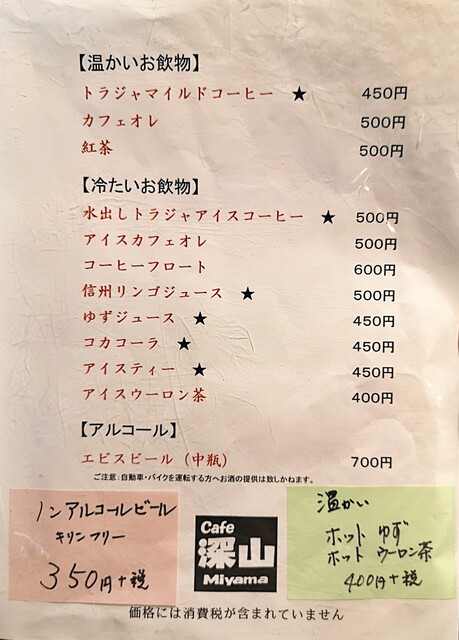 【温かいお飲物】
トラジャマイルドコーヒー ★ 450円
カフェオレ 500円
紅茶 500円
【冷たいお飲物】
水出しトラジャアイスコーヒー ★ 500円
アイスカフェオレ 500円
コーヒーフロート 600円
信州リンゴジュース ★ 500円
ゆずジュース ★ 450円
コカコーラ ★ 450円
アイスティー ★ 450円
アイスウーロン茶 400円
【アルコール】
エビスビール（中瓶） 700円
ご注意：自動車・バイクを運転する方へお酒の提供は致しかねます。
ノンアルコールビール
キリンフリー
350円+税
Cafe
深山
Miyama
温かい
ホット ゆず
ホット ウーロン茶
400円+税
価格には消費税が含まれていません